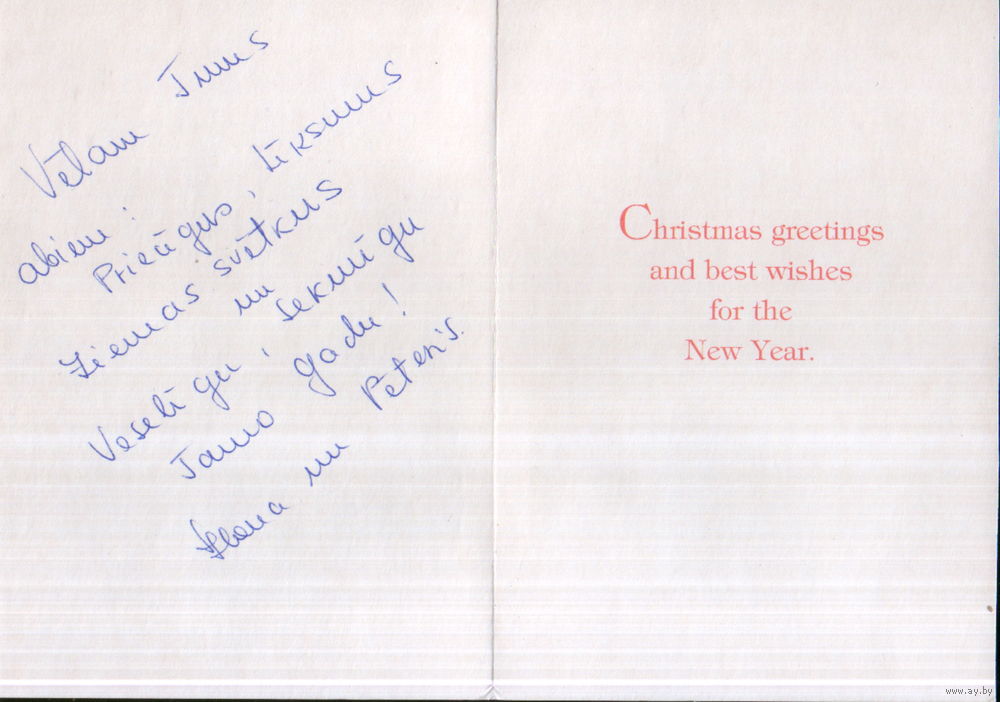 Vēlam Jums
abiem:
Priecīgus, līksmus
Ziemas svētkus
un
Veselīgu, sekmīgu
Jauno gadu!
Ilona un Pēteris.
Christmas greetings
and best wishes
for the
New Year.
www.ay.by